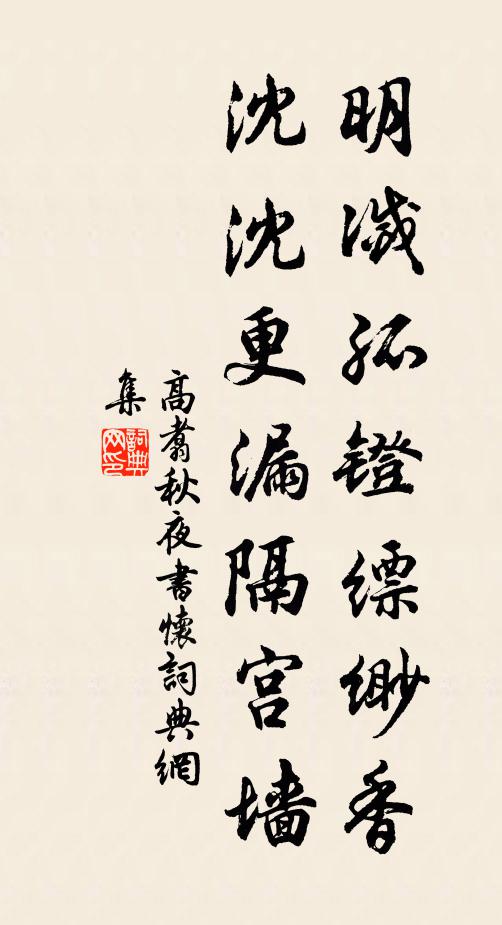 明滅孤鐙縹緲香
沈沈更漏隔宫墙
高翥秋夜書懷詞典網
集
詞典
网印